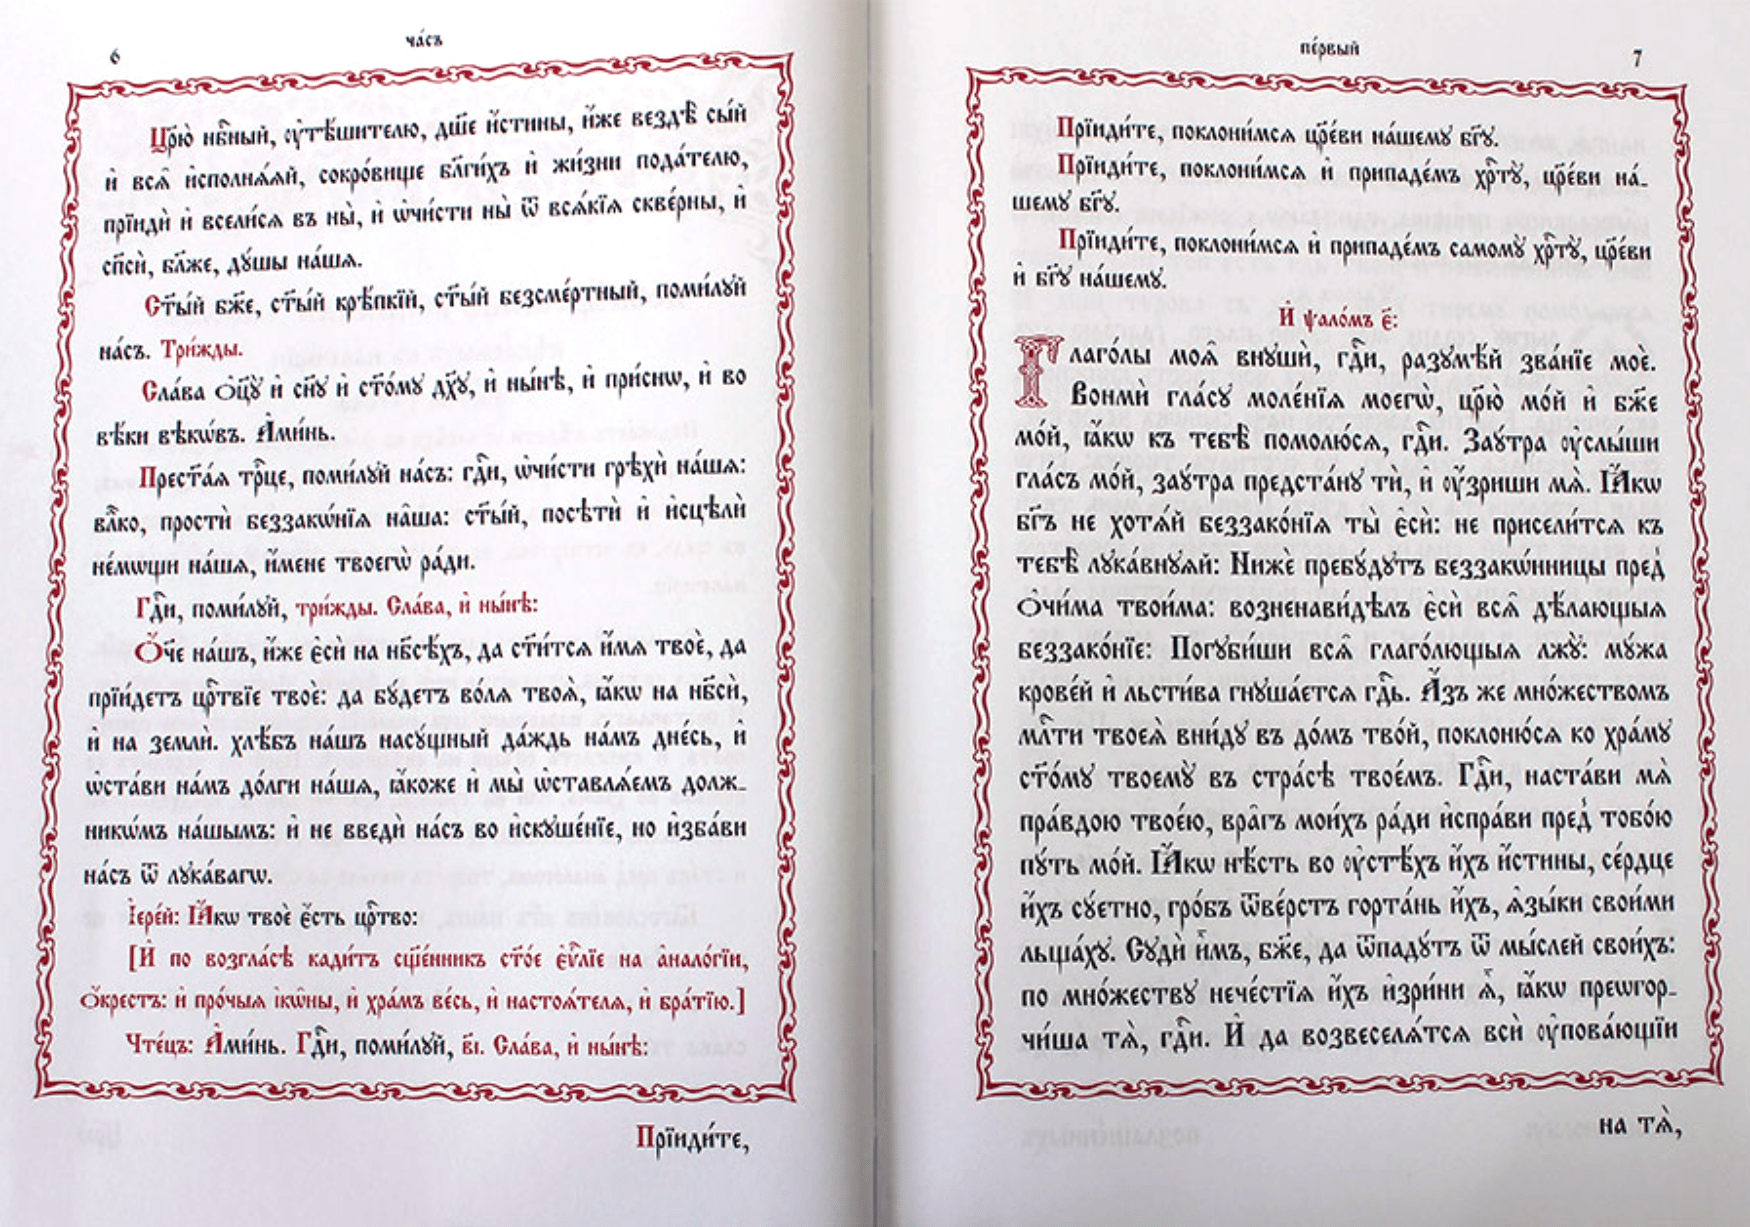 6
ча́съ
Цр҃ю̀ нбⷭ҇ный, ᲂу҆тѣ́шителю, дш҃е и҆́стины, и҆́же вездѣ̀ сы́й
и҆ всѧ̑ и҆сполнѧ́ѧй, сокро́вище бл҃ги́хъ и҆ жи́зни пода́телю,
прїидѝ и҆ всели́сѧ въ ны̀, и҆ ѡ҆чи́сти ны̀ ѿ всѧ́кїѧ скве́рны, и҆
сп҃сѝ, бл҃же, дꙋ́шы на́шѧ.
Ст҃ы́й бж҃е, ст҃ы́й крѣ́пкїй, ст҃ы́й безсме́ртный, поми́лꙋй
на́съ. Три́жды.
Сла́ва ѻ҆ц҃ꙋ̀ и҆ сн҃ꙋ и҆ ст҃о́мꙋ дх҃ꙋ, и҆ ны́нѣ, и҆ при́снѡ, и҆ во
вѣ́ки вѣкѡ́въ. А҆ми́нь.
Прест҃а́ѧ трⷪ҇це, поми́лꙋй на́съ: гдⷭ҇и, ѡ҆чи́сти грѣхѝ на́шѧ:
влⷣко, простѝ беззакѡ́нїѧ на̑ша: ст҃ы́й, посѣтѝ и҆ и҆сцѣлѝ
не́мѡщи на́шѧ, и҆́мене твоегѡ̀ ра́ди.
Гдⷭ҇и, поми́лꙋй, три́жды. Сла́ва, и҆ ны́нѣ:
Ѻ҆́ч҃е на́шъ, и҆́же є҆сѝ на нб҃сѣ́хъ, да ст҃и́тсѧ и҆́мѧ твоѐ, да
прїи́детъ црⷭ҇твїе твоѐ: да бꙋ́детъ во́лѧ твоѧ̀, ꙗ҆́кѡ на нб҃сѝ,
и҆ на землѝ. хлѣ́бъ на́шъ насꙋ́щный да́ждь на́мъ дне́сь, и҆
ѡ҆ста́ви на́мъ до́лги на́шѧ, ꙗ҆́коже и҆ мы̀ ѡ҆ставлѧ́емъ долж_
никѡ́мъ на́шымъ: и҆ не введѝ на́съ во и҆скꙋше́нїе, но и҆зба́ви
на́съ ѿ лꙋка́вагѡ.
І҆ере́й: Ꙗ҆́кѡ твоѐ є҆́сть црⷭ҇тво:
[И҆ по возгла́сѣ кади́тъ сщ҃е́нникъ ст҃о́е є҆ѵⷢ҇лїе на а҆нало́гїи,
ѻ҆́крестъ: и҆ про́чыѧ і҆кѡ́ны, и҆ хра́мъ ве́сь, и҆ настоѧ́телѧ, и҆ бра́тїю.]
Чте́цъ: А҆ми́нь. Гдⷭ҇и, поми́лꙋй, в҃і. Сла́ва, и҆ ны́нѣ:
Прїиди́те,
пе́рвый
7
Прїиди́те, поклони́мсѧ цр҃е́ви на́шемꙋ бг҃ꙋ.
Прїиди́те, поклони́мсѧ и҆ припаде́мъ хрⷭ҇тꙋ̀, цр҃е́ви на́_
шемꙋ бг҃ꙋ.
Прїиди́те, поклони́мсѧ и҆ припаде́мъ самомꙋ̀ хрⷭ҇тꙋ̀, цр҃е́ви
и҆ бг҃ꙋ на́шемꙋ.
И҆ ѱало́мъ є҃:
Глаго́лы моѧ̑ внꙋшѝ, гдⷭ҇и, разꙋмѣ́й зва́нїе моѐ.
Вонмѝ гла́сꙋ моле́нїѧ моегѡ̀, цр҃ю̀ мо́й и҆ бж҃е
мо́й, ꙗ҆́кѡ къ тебѣ̀ помолю́сѧ, гдⷭ҇и. Заꙋ́тра ᲂу҆слы́ши
гла́съ мо́й, заꙋ́тра предста́нꙋ тѝ, и҆ ᲂу҆́зриши мѧ̀. Ꙗ҆́кѡ
бг҃ъ не хотѧ́й беззако́нїѧ ты̀ є҆сѝ: не присели́тсѧ къ
тебѣ̀ лꙋка́внꙋѧй: Нижѐ пребꙋ́дꙋтъ беззакѡ́нницы пред̾
ѻ҆чи́ма твои́ма: возненави́дѣлъ є҆сѝ всѧ̑ дѣ́лающыѧ
беззако́нїе: Погꙋби́ши всѧ̑ глаго́лющыѧ лжꙋ̀: мꙋ́жа
крове́й и҆ льсти́ва гнꙋша́етсѧ гдⷭ҇ь. А҆́зъ же мно́жествомъ
млⷭ҇ти твоеѧ̀ вни́дꙋ въ до́мъ тво́й, поклоню́сѧ ко хра́мꙋ
ст҃о́мꙋ твоемꙋ̀ въ стра́сѣ твое́мъ. Гдⷭ҇и, наста́ви мѧ̀
пра́вдою твое́ю, вра̑гъ мои́хъ ра́ди и҆спра́ви пред̾ тобо́ю
пꙋ́ть мо́й. Ꙗ҆́кѡ нѣ́сть во ᲂу҆стѣ́хъ и҆́хъ и҆́стины, се́рдце
и҆́хъ сꙋ́етно, гро́бъ ѿве́рстъ горта́нь и҆́хъ, ѧ҆зы̑ки свои́ми
льща́хꙋ. Сꙋдѝ и҆̀мъ, бж҃е, да ѿпадꙋ́тъ ѿ мы́слей свои́хъ:
по мно́жествꙋ нече́стїѧ и҆́хъ и҆зри́ни ѧ҆̀, ꙗ҆́кѡ преѡгор_
чи́ша тѧ̀, гдⷭ҇и. И҆ да возвеселѧ́тсѧ всѝ ᲂу҆пова́ющїи
на тѧ̀,